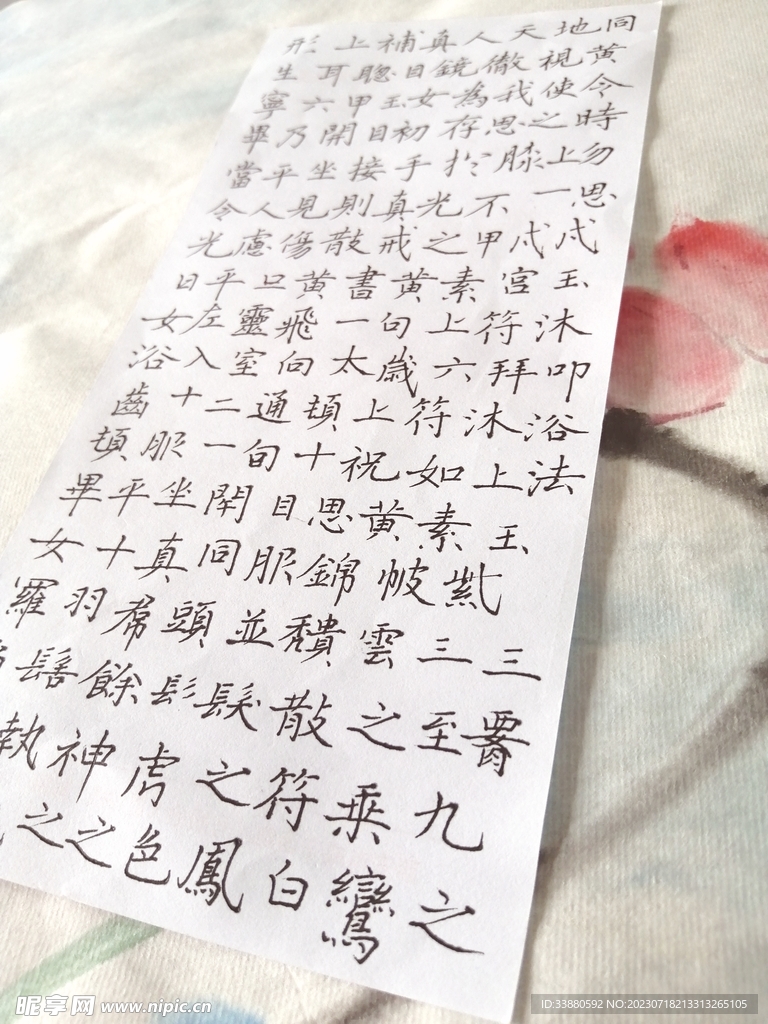 形上補真人天地同
生耳聰目鏡徹視黃
寧六甲玉女為我使令
畢乃開目初存思之時
當平坐接手於膝上勿
令人見則真光不一思
光慮傷散戒之甲戌戌
日平口黃書黃素宮玉
女左靈飛一旬上符沐
浴入室向太歲六拜叩
齒十二通頓上符沐浴
頓服一旬十祝如上法
畢平坐閉目思黃素玉
女十真同服錦帔紫
羅羽帬頭並穨雲三三
髻餘髟髮散之至
執神虎之符乘九
之之色鳳白鸞之
昵享网 www.nipic.cn
ID:33880592 NO:20230718213313265105